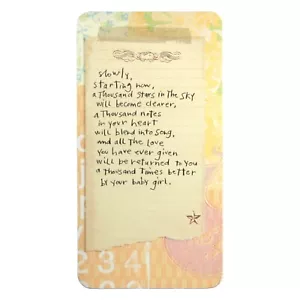 slowly,
starting now,
a thousand stars in the sky
will become clearer,
a thousand notes
in your heart
will blend into song,
and all the love
you have ever given
will be returned to you
a thousand times better
by your baby girl.
234